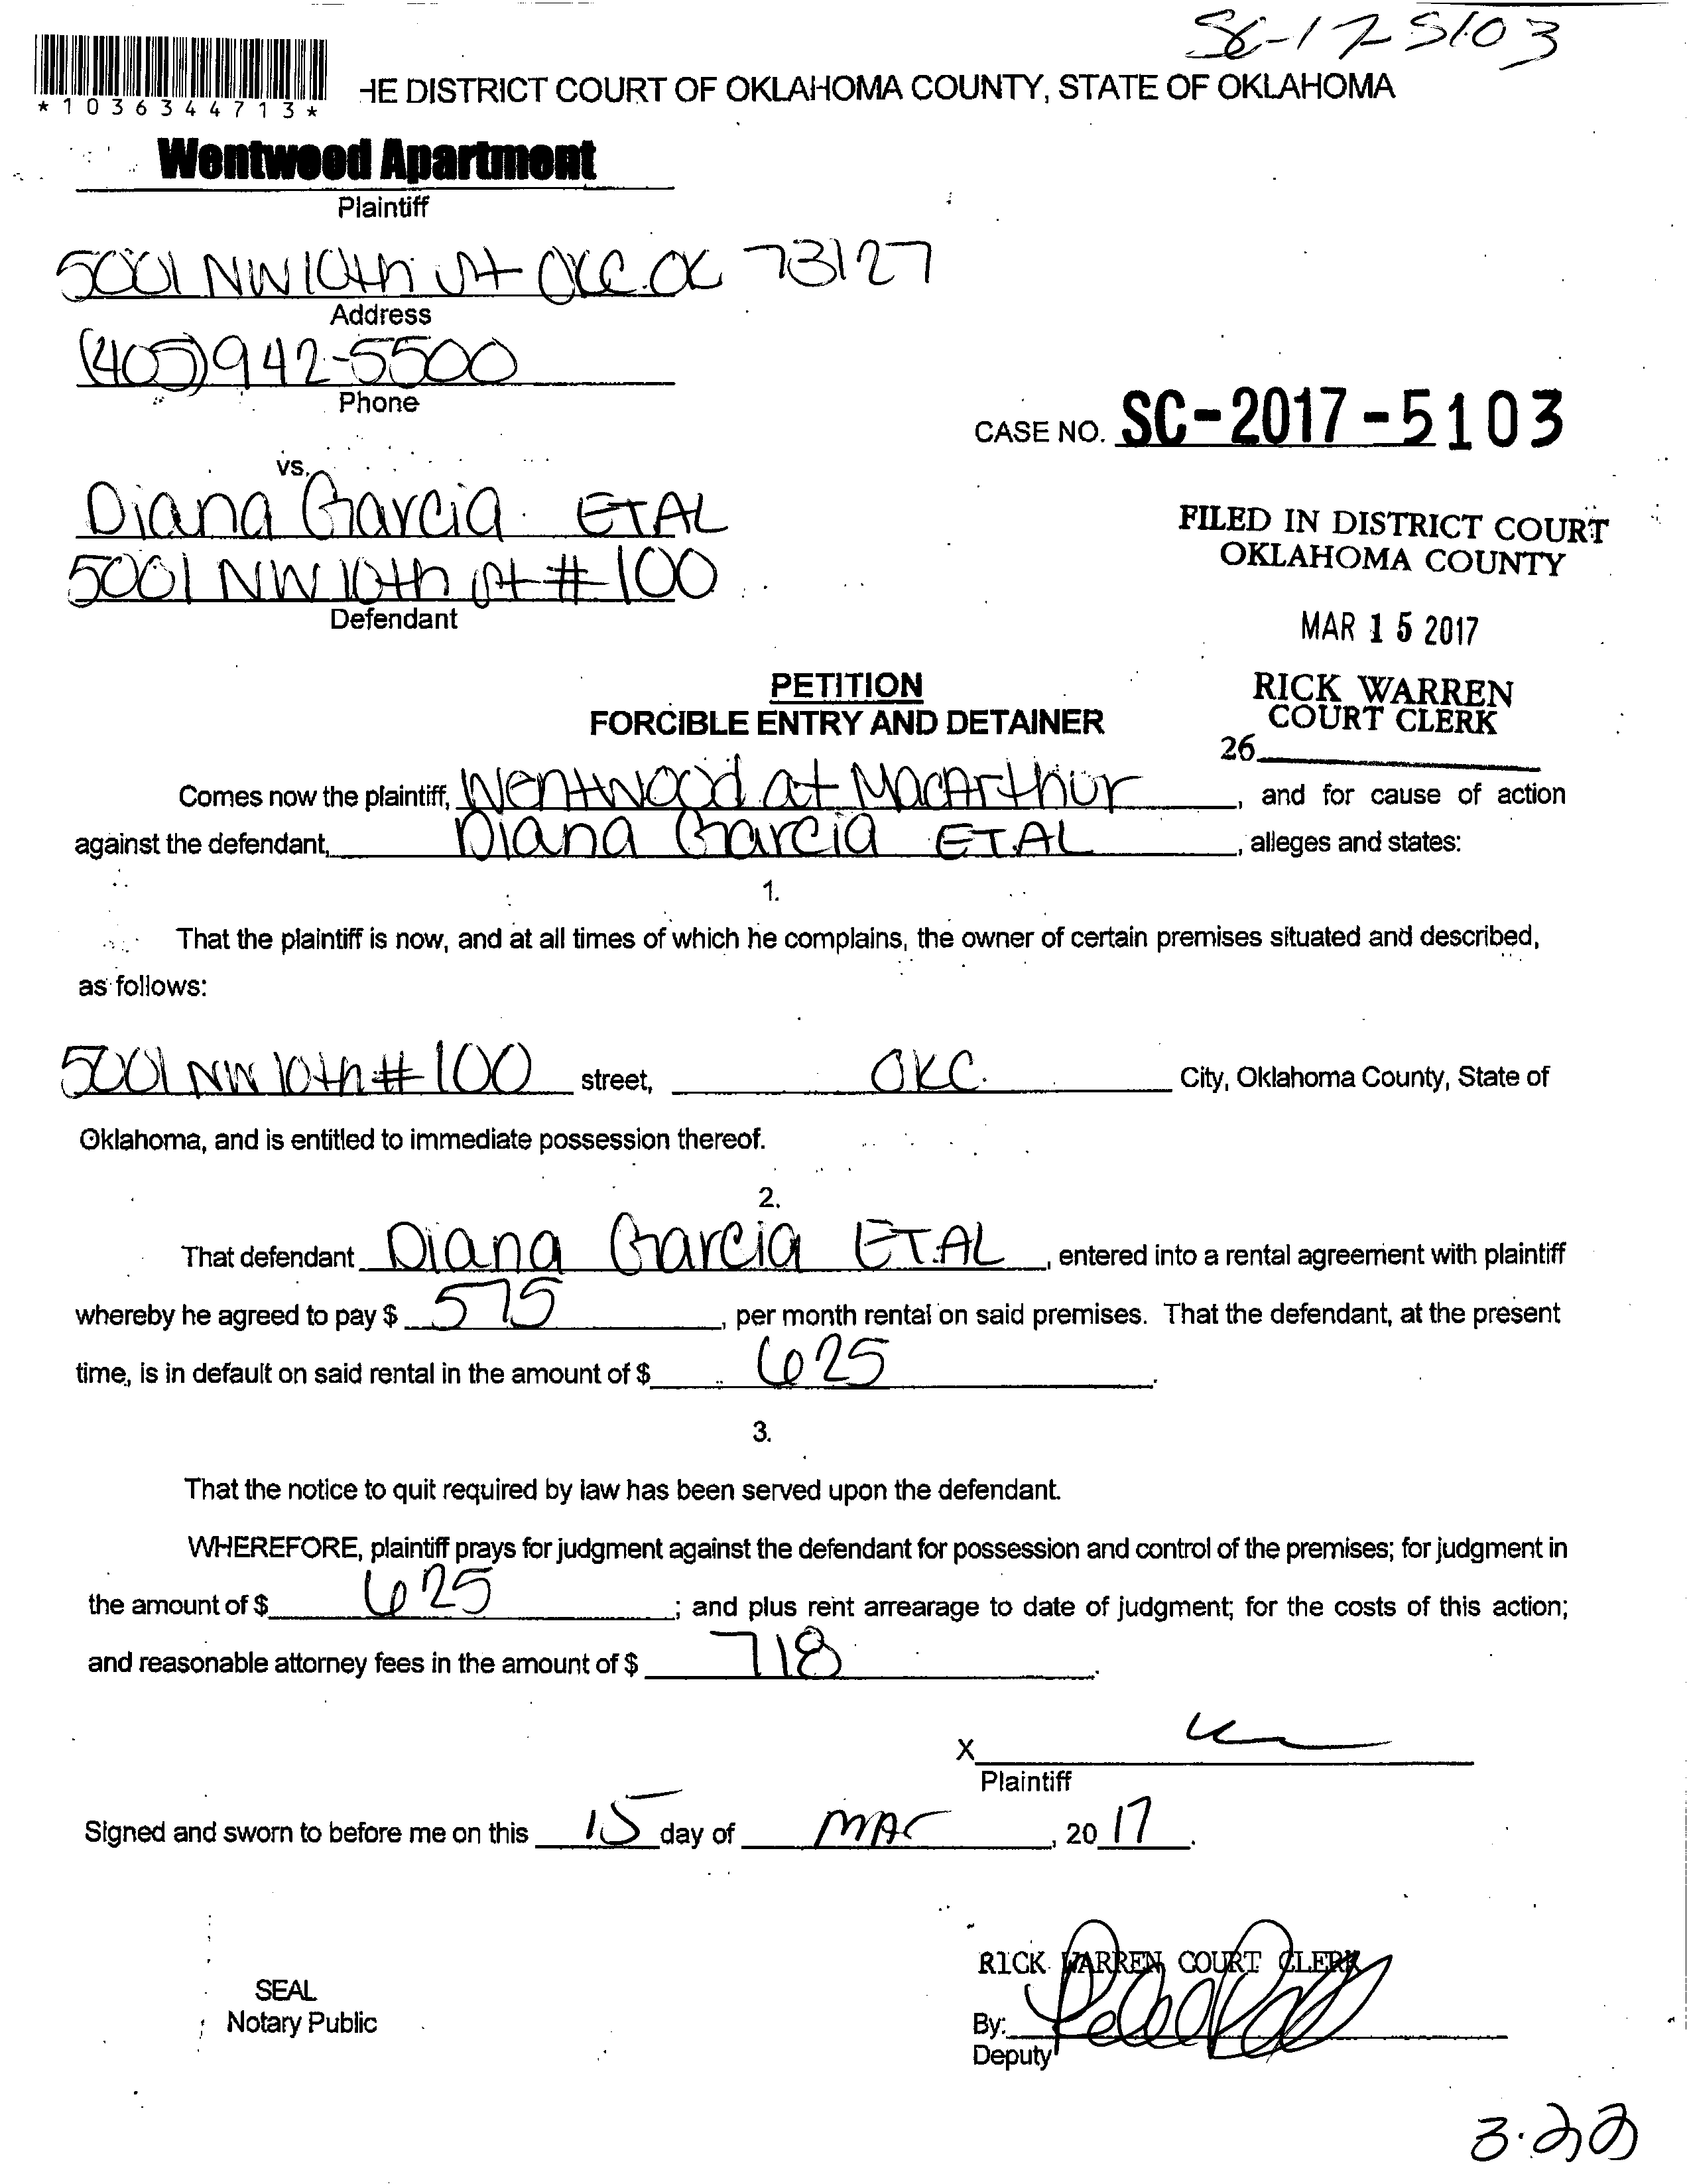 SC-17-5103
*1036344713*
HE DISTRICT COURT OF OKLAHOMA COUNTY, STATE OF OKLAHOMA
Wentwood Apartment
Plaintiff
5001 NW 10th St OKC. OK 73127
Address
(405)942-5500
Phone
CASE NO. SC-2017-5103
vs.
Diana Garcia ETAL
5001 NW 10th St #100
Defendant
FILED IN DISTRICT COURT
OKLAHOMA COUNTY
MAR 15 2017
RICK WARREN
COURT CLERK
26
PETITION
FORCIBLE ENTRY AND DETAINER
Comes now the plaintiff, Wentwood at MacArthur, and for cause of action
against the defendant, Diana Garcia ET.AL, alleges and states:
1.
That the plaintiff is now, and at all times of which he complains, the owner of certain premises situated and described,
as follows:
5001 NW 10th #100 street, OKC. City, Oklahoma County, State of
Oklahoma, and is entitled to immediate possession thereof.
2.
That defendant Diana Garcia ET.AL, entered into a rental agreement with plaintiff
whereby he agreed to pay $ 575, per month rental on said premises. That the defendant, at the present
time, is in default on said rental in the amount of $ 625.
3.
That the notice to quit required by law has been served upon the defendant.
WHEREFORE, plaintiff prays for judgment against the defendant for possession and control of the premises; for judgment in
the amount of $ 625; and plus rent arrearage to date of judgment; for the costs of this action;
and reasonable attorney fees in the amount of $ 718.
X
Plaintiff
Signed and sworn to before me on this 15 day of MAR, 20 17.
SEAL
Notary Public
RICK WARREN, COURT CLERK
By:
Deputy
3.22